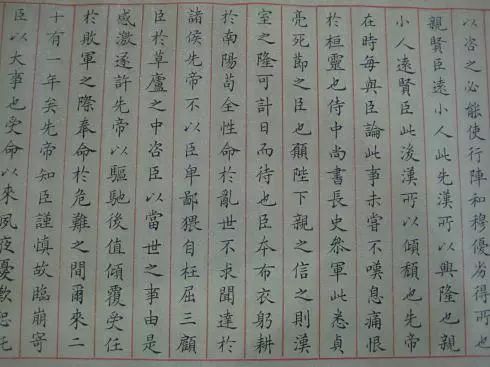 以咨之必能使行陣和穆優劣得所也
親賢臣遠小人此先漢所以興隆也親
小人遠賢臣此後漢所以傾頹也先帝
在時每與臣論此事未嘗不嘆息痛恨
於桓靈也侍中尚書長史叅軍此悉貞
亮死節之臣也願陛下親之信之則漢
室之隆可計日而待也臣本布衣躬耕
於南陽苟全性命於亂世不求聞達於
諸侯先帝不以臣卑鄙猥自枉屈三顧
臣於草廬之中咨臣以當世之事由是
感激遂許先帝以驅馳後值傾覆受任
於敗軍之際奉命於危難之間爾來二
十有一年矣先帝知臣謹慎故臨崩寄
臣以大事也受命以來夙夜憂歎恐託